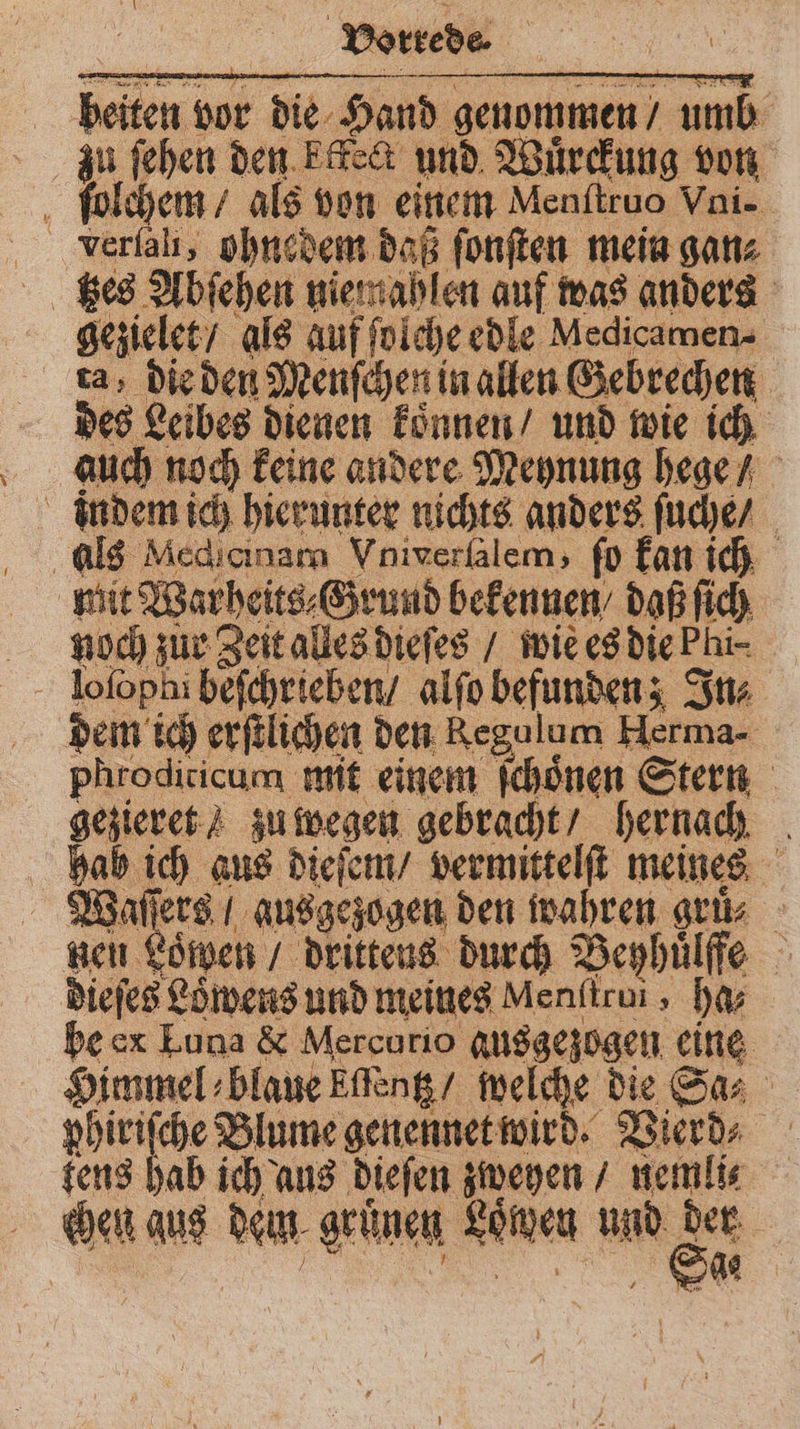 Vorrede.
beiten vor die Hand genommen / umb
zu ſehen den Effect und Wuͤrckung von
ſolchem / als von einem Menſtruo Vni-
verſali, ohnedem daß ſonſten mein gan⸗
tzes Abſehen niemahlen auf was anders
gezielet / als auf ſolche edle Medicamen-
ta, die den Menſchen in allen Gebrechen
des Leibes dienen koͤnnen / und wie ich
auch noch keine andere Meynung hege /
indem ich hierunter nichts anders ſuche /
als Medicinam Vniverſalem, ſo kan ich
mit Warheits⸗Grund bekennen / daß ſich
noch zur Zeit alles dieſes / wie es die Phi-
loſophi beſchrieben / alſo befunden; In⸗
dem ich erſtlichen den Regulum Herma-
phroditicum mit einem ſchoͤnen Stern
gezieret / zu wegen gebracht / hernach
hab ich aus dieſem / vermittelſt meines
Waſſers / ausgezogen den wahren gruͤ⸗
nen Loͤwen / drittens durch Beyhuͤlffe
dieſes Loͤwens und meines Menſtrui, ha⸗
be ex Luna & Mercurio ausgezogen eine
Himmel⸗blaue Eſſentz / welche die Sa⸗
phiriſche Blume genennet wird. Vierd⸗
tens hab ich aus dieſen zweyen / nemli⸗
chen aus dem gruͤnen Loͤwen und der
Sa⸗